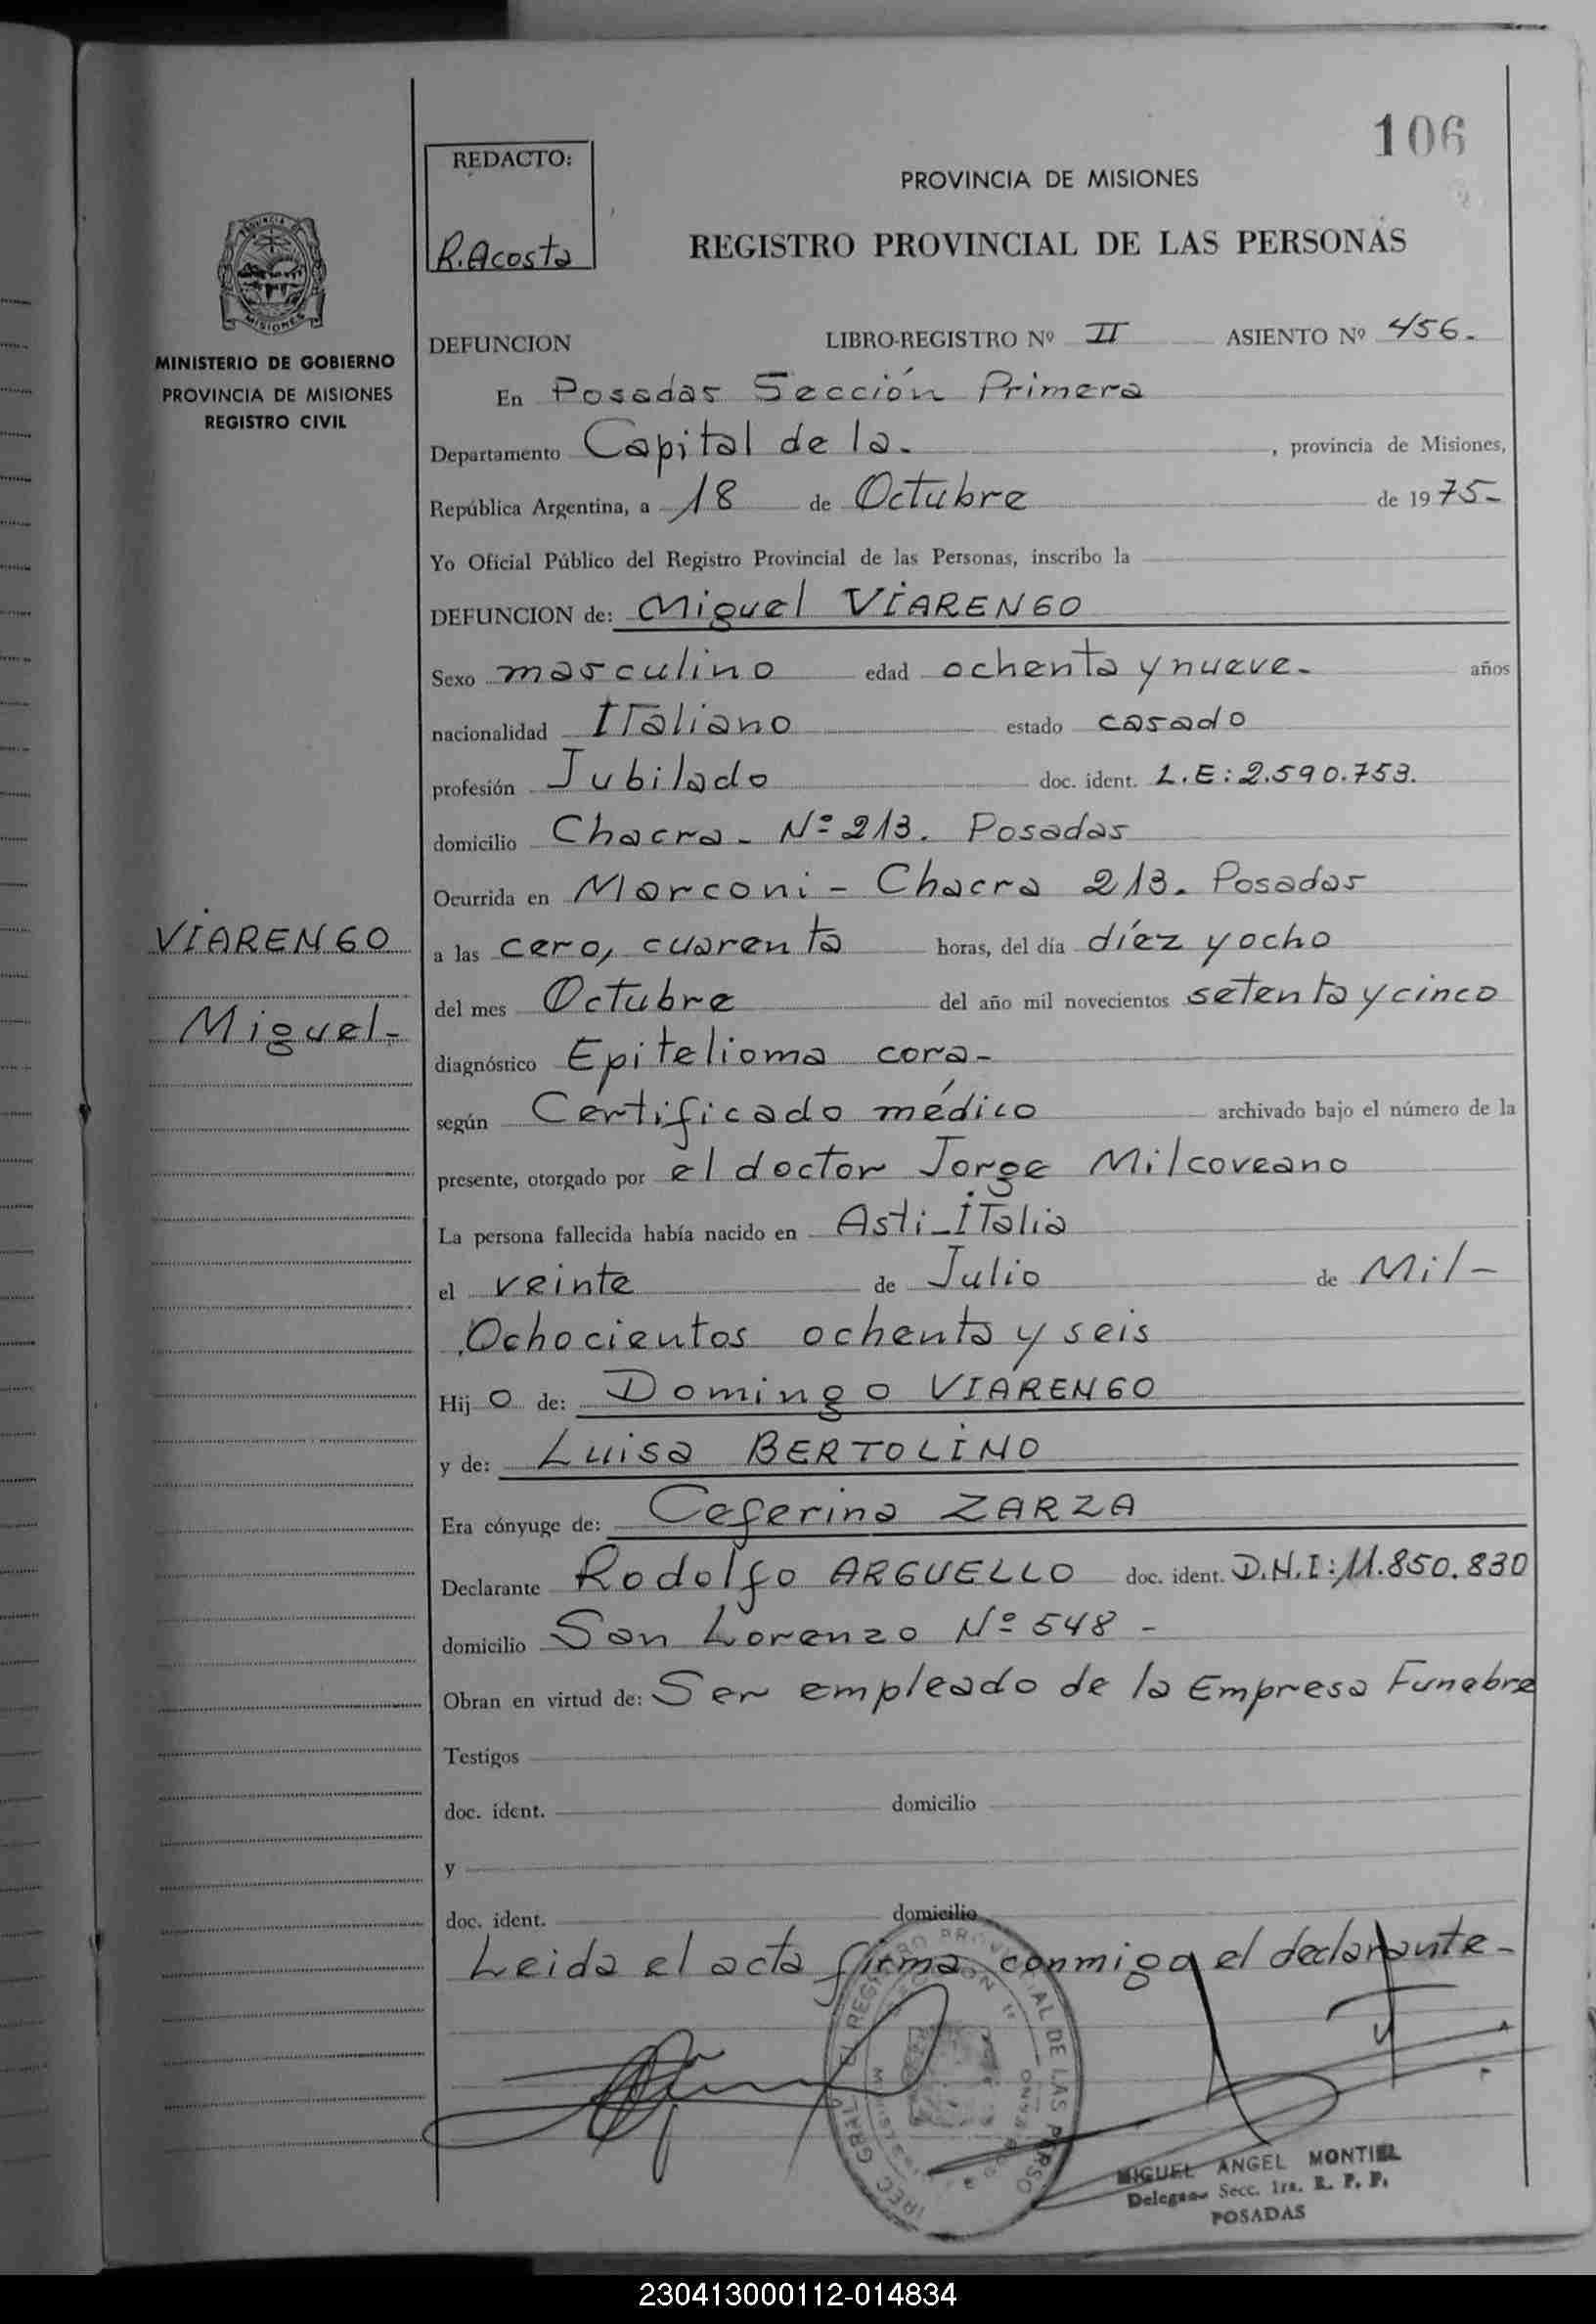 106
REDACTO:
R. Acosta
PROVINCIA DE MISIONES
REGISTRO PROVINCIAL DE LAS PERSONAS
MISIONES
MINISTERIO DE GOBIERNO
PROVINCIA DE MISIONES
REGISTRO CIVIL
VIARENGO
Miguel-
DEFUNCION LIBRO-REGISTRO Nº II ASIENTO Nº 456.-
En Posadas Sección Primera
Departamento Capital de la. , provincia de Misiones,
República Argentina, a 18 de Octubre de 1975-
Yo Oficial Público del Registro Provincial de las Personas, inscribo la
DEFUNCION de: Miguel VIARENGO
Sexo masculino edad ochenta y nueve. años
nacionalidad Italiano estado casado
profesión Jubilado doc. ident. L.E: 2.590.753.
domicilio Chacra - Nº 213. Posadas
Ocurrida en Marconi - Chacra 213. Posadas
a las cero, cuarenta horas, del día díez y ocho
del mes Octubre del año mil novecientos setenta y cinco
diagnóstico Epitelioma cara-
según Certificado médico archivado bajo el número de la
presente, otorgado por el doctor Jorge Milcoveano
La persona fallecida había nacido en Asti - Italia
el veinte de Julio de Mil-
Ochocientos ochenta y seis
Hijo de: Domingo VIARENGO
y de: Luisa BERTOLINO
Era cónyuge de: Ceferina ZARZA
Declarante Rodolfo ARGUELLO doc. ident. D.N.I: 11.850.830
domicilio San Lorenzo Nº 548 -
Obran en virtud de: Ser empleado de la Empresa Funebre
Testigos
doc. ident. domicilio
y
doc. ident. domicilio
Leida el acta firma conmigo el declarante-
MIGUEL ANGEL MONTIEL
Secc. 1ra. R. P. P.
POSADAS
230413000112-014834